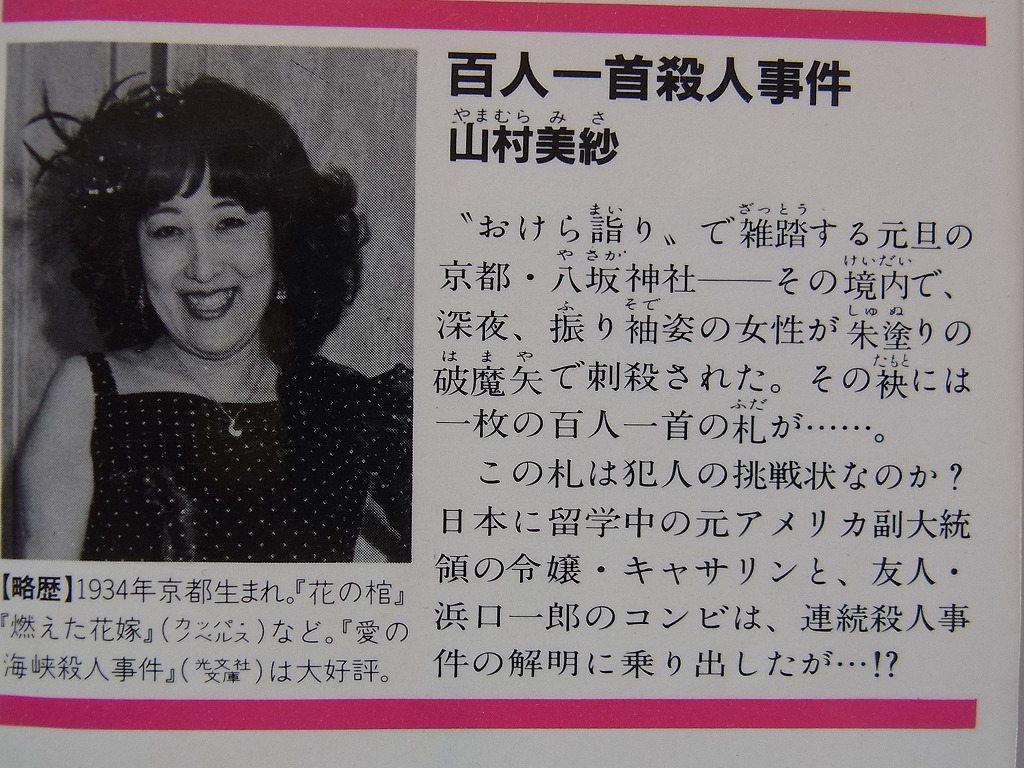 百人一首殺人事件
やまむら み さ
山村美紗
〝おけら詣り〟で雑踏する元旦の
京都・八坂神社――その境内で、
深夜、振り袖姿の女性が朱塗りの
破魔矢で刺殺された。その袂には
一枚の百人一首の札が……。
この札は犯人の挑戦状なのか？
日本に留学中の元アメリカ副大統
領の令嬢・キャサリンと、友人・
浜口一郎のコンビは、連続殺人事
件の解明に乗り出したが…!?
【略歴】1934年京都生まれ。『花の棺』
『燃えた花嫁』(カッパ・ノベルス)など。『愛の
海峡殺人事件』(光文社文庫)は大好評。